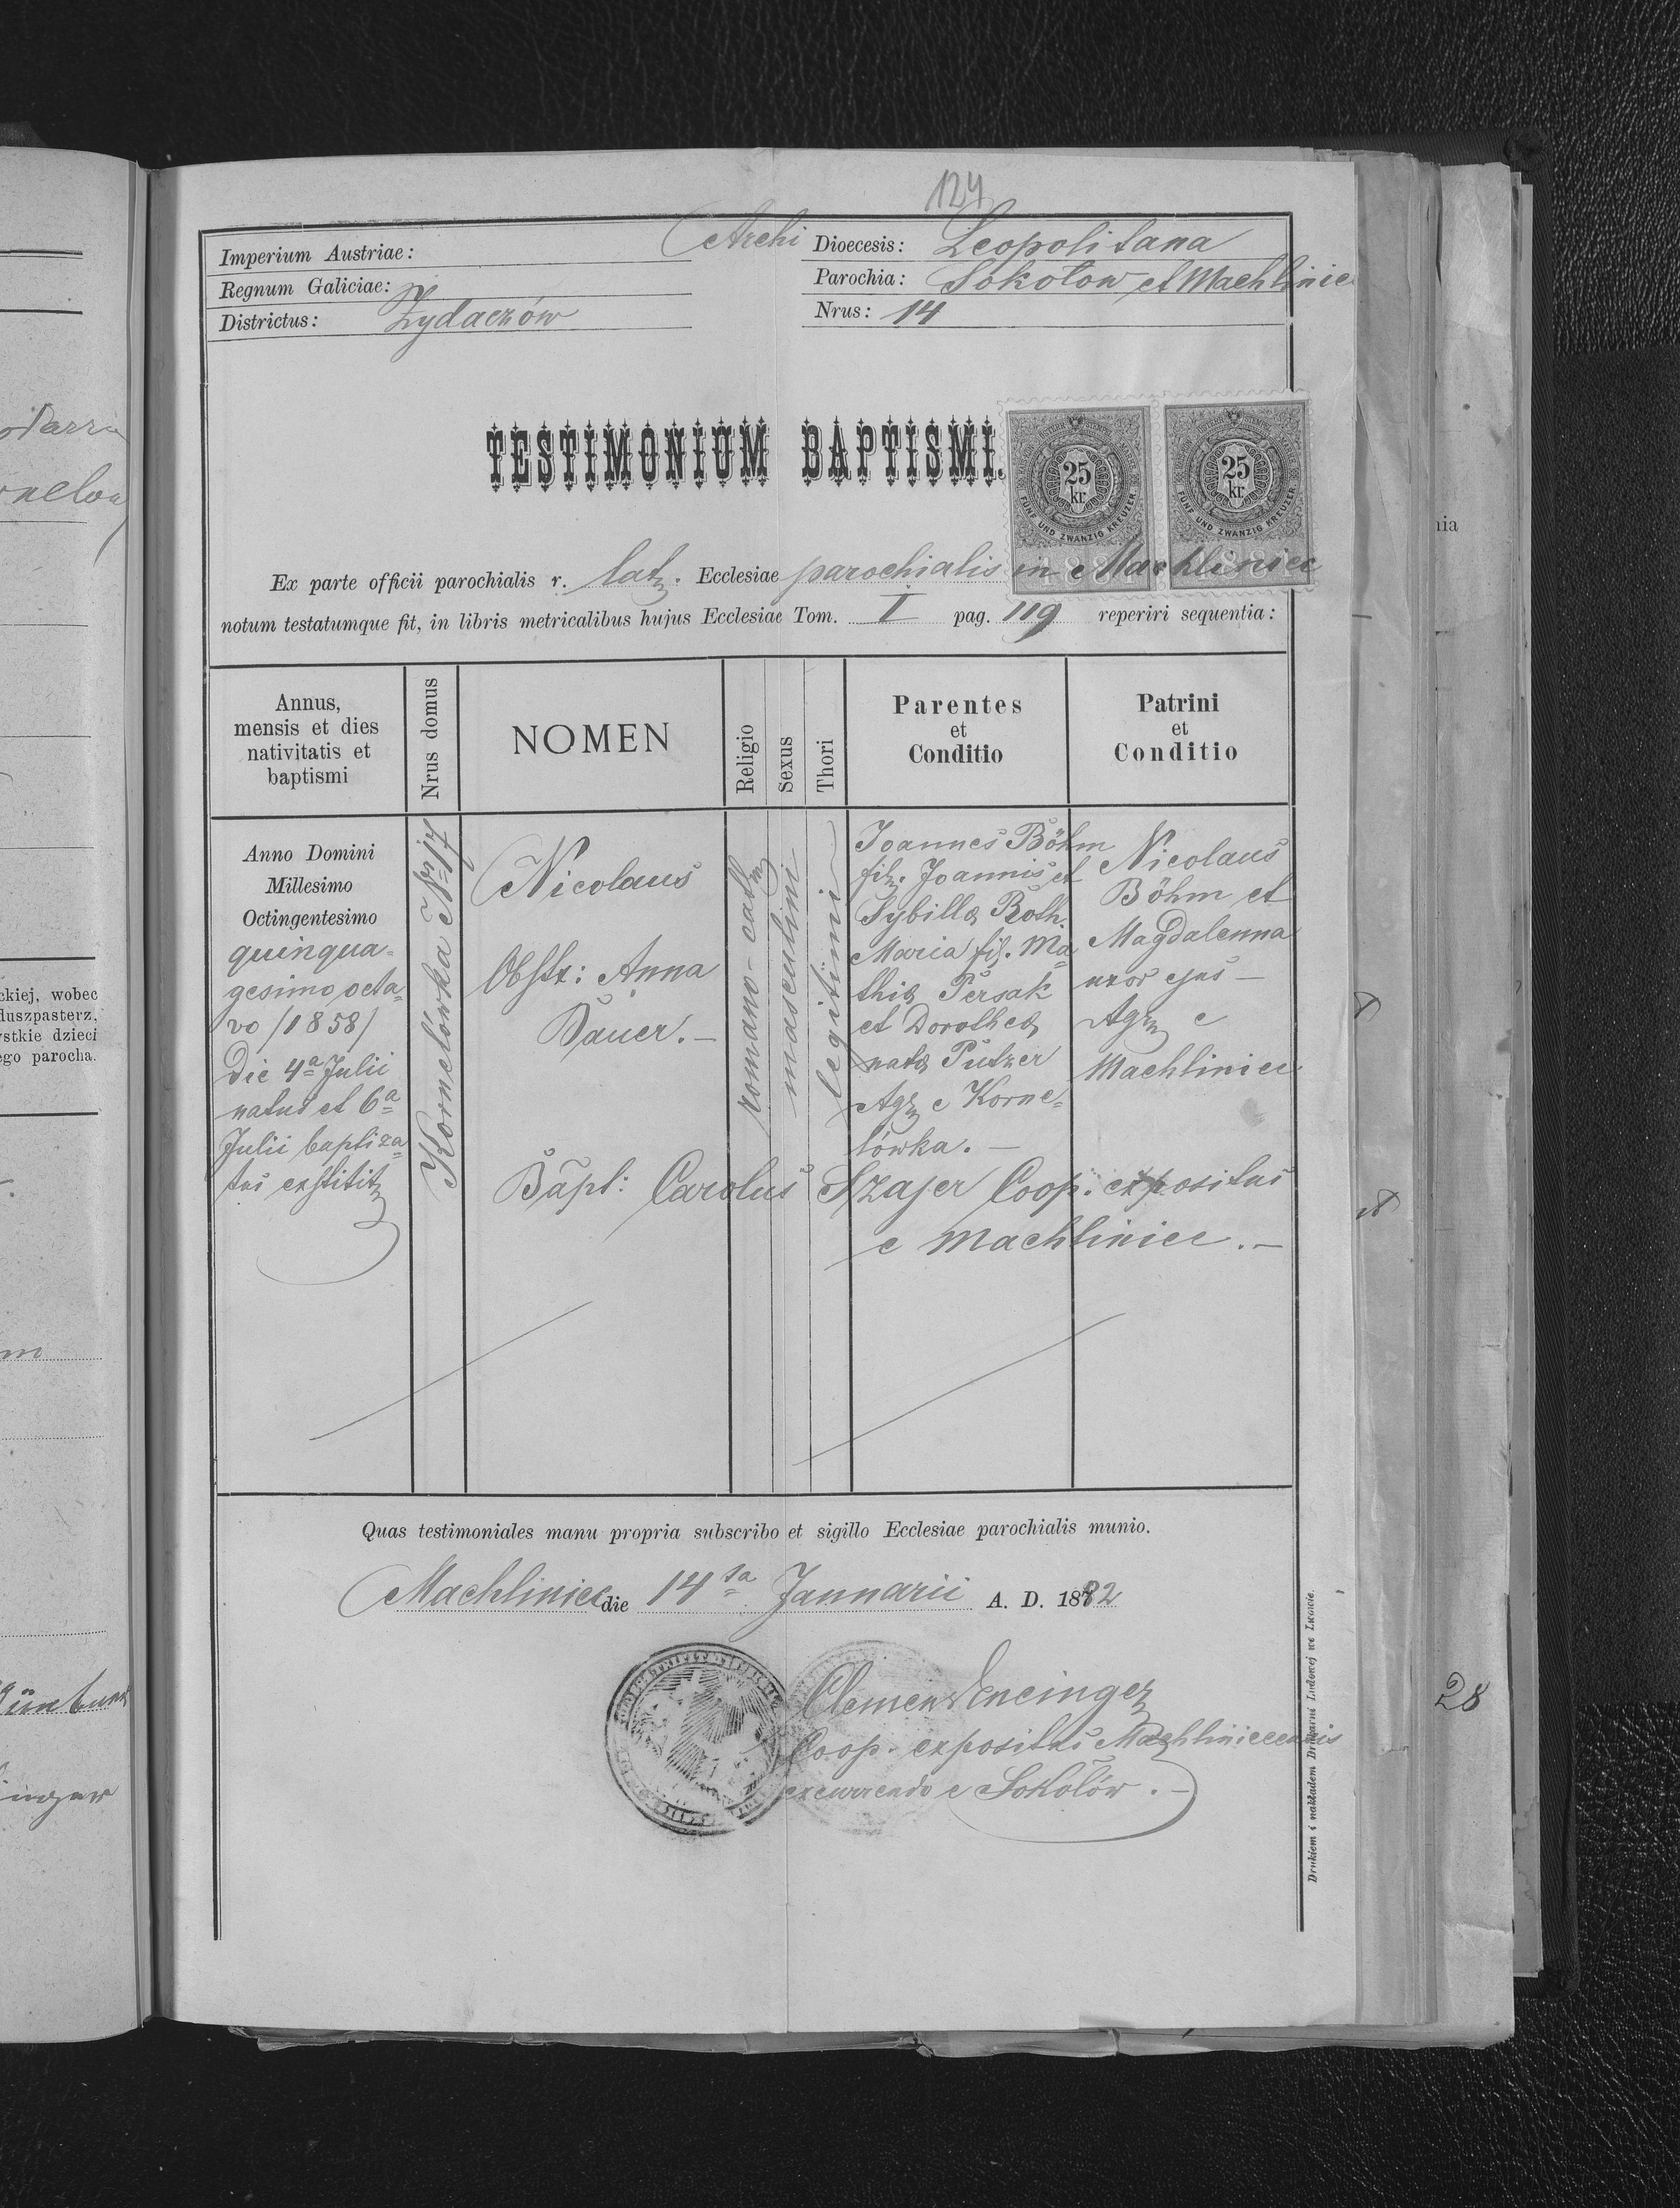 124
Imperium Austriae:
Archi Dioecesis: Leopolitana
Regnum Galiciae:
Parochia: Sokołow et Machliniec
Districtus: Żydaczów
Nrus: 14
TESTIMONIUM BAPTISMI.
25 kr
FÜNF UND ZWANZIG KREUZER
25 kr
FÜNF UND ZWANZIG KREUZER
Ex parte officii parochialis r. lat. Ecclesiae parochialis in Machliniec
notum testatumque fit, in libris metricalibus hujus Ecclesiae Tom. I pag. 119 reperiri sequentia:
Annus,
mensis et dies
nativitatis et
baptismi
Nrus domus
NOMEN
Religio
Sexus
Thori
Parentes
et
Conditio
Patrini
et
Conditio
Anno Domini
Millesimo
Octingentesimo
quinqua=
gesimo octa=
vo /1858/
Die 4ª Julii
natus et 6ª
Julii baptiza=
tus exstitit
Kornelówka Nr 17
Nicolaus
Obstr: Anna
Bauer. –
romano-cath
masculini
legitimi
Joannes Böhm
fil. Joannis et
Sybilla Roth.
Maria fil. Ma
thia Persak
et Dorothea
nata Putzer
Agr. e Korne=
lówka. –
Nicolaus
Böhm et
Magdalenna
uxor ejus –
Agr. e
Machliniec
Bapt: Carolus Szajer Coop. expositus
e Machliniec. –
Quas testimoniales manu propria subscribo et sigillo Ecclesiae parochialis munio.
Machliniec die 14ta Jannarii A. D. 1882
Clemens
Coop. expositus Machliniecensis
excurrendo e Sokołów. –
Drukiem i nakładem Drukarni Ludowej we Lwowie.
ckiej, wobec
duszpasterz,
ystkie dzieci
ego parocha.
nia
28